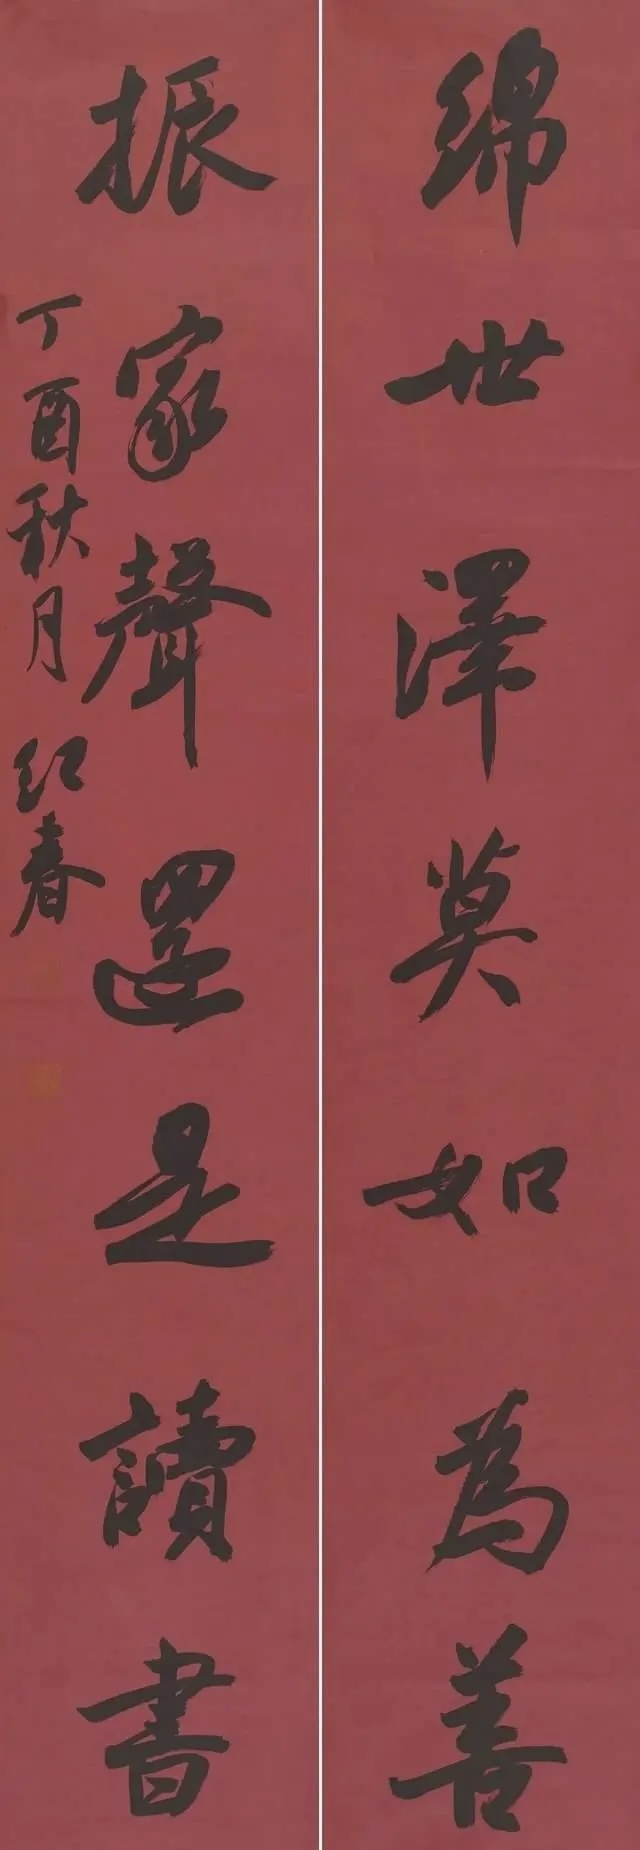 綿世澤莫如為善
振家聲還是讀書
丁酉秋月 紅春